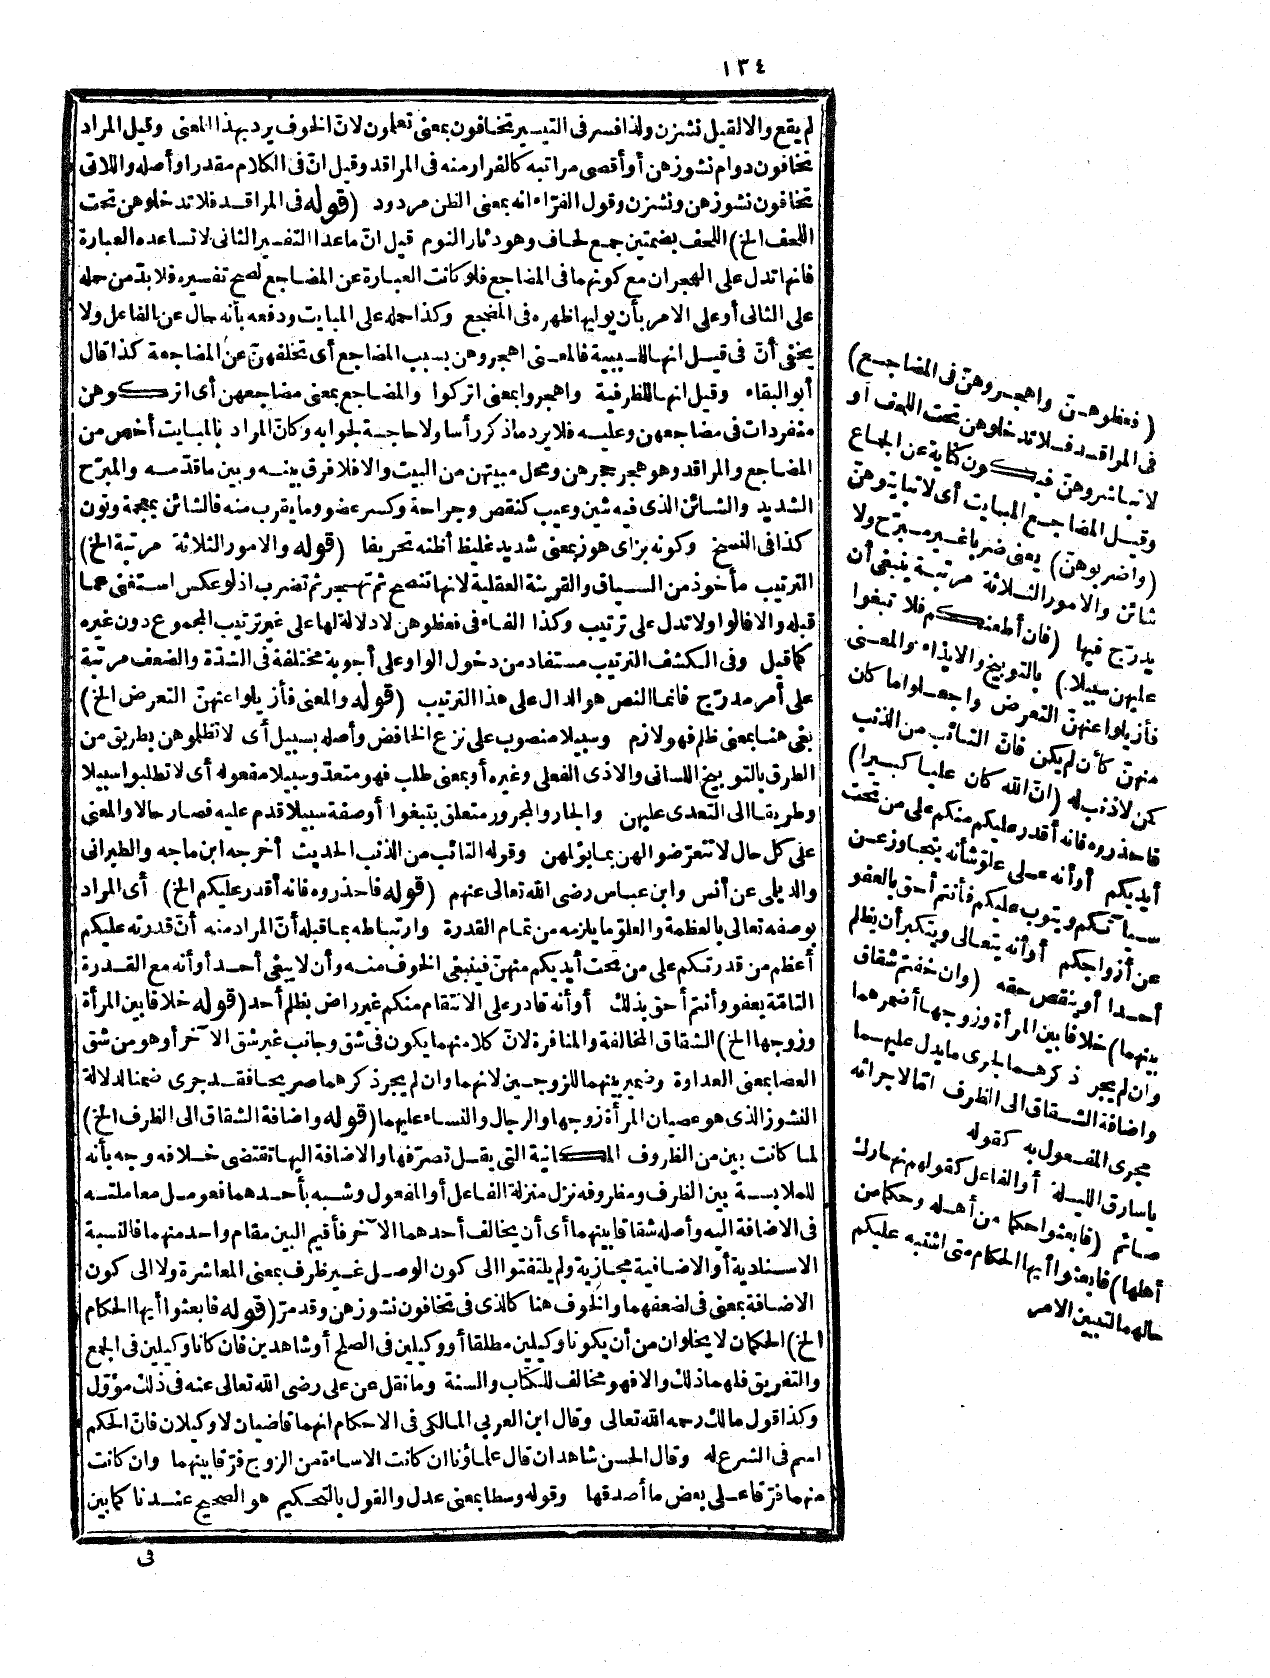 ١٣٤
لم يقع والا لقيل نشزن ولذا فسر فى التيسير تخافون بمعنى تعلمون لانّ الخوف يرد بهذا المعنى وقيل المراد
تخافون دوام نشوزهن أو أقصى مراتبه كالفرار منه فى المراقد وقيل انّ فى الكلام مقدرا وأصله واللاتى
تخافون نشوزهن ونشزن وقول الفرّاء انه بمعنى الظن مردود (قوله فى المراقد فلا تدخلوهن تحت
اللحف الخ) اللحف بضمتين جمع لحاف وهو دثار النوم قيل انّ ماعدا التفسير الثانى لا تساعده العبارة
فانها تدل على الهجران مع كونهما فى المضاجع فلو كانت العبارة عن المضاجع لصح تفسيره فلا بدّ من حمله
على الثانى أو على الامر بأن يوليها ظهره فى المضجع وكذا حمله على المبايت ودفعه بأنه حال عن الفاعل ولا
يخفى أنّ فى قيل انها للسببية فالمعنى اهجروهن بسبب المضاجع أى تخلفهنّ عن المضاجعة كذا قال
أبو البقاء وقيل انها للظرفية واهجروا بمعنى اتركوا والمضاجع بمعنى مضاجعهن أى اتركوهن
منفردات فى مضاجعهن وعليه فلا يرد ماذكر رأسا ولا حاجة لجوابه وكأنّ المراد بالمبايت أخص من
المضاجع والمراقد وهو هجر حجرهن ومحل مبيتهن من البيت والا فلا فرق بينه وبين ما قدّمه والمبرّح
الشديد والشائن الذى فيه شين وعيب كنقص وجراحة وكسر عضو وما يقرب منه فالشائن بمعجمة ونون
كذا فى النسخ وكونه بزاى هوز بمعنى شديد غليظ أظنه تحريفا (قوله والامور الثلاثة مرتبة الخ)
الترتيب مأخوذ من السياق والقرينة العقلية لانها تنصح ثم تهجر ثم تضرب اذ لو عكس استغنى عما
قبله والا فالواو لا تدل على ترتيب وكذا الفاء فى فعظوهن لا دلالة لها على غير ترتيب المجموع دون غيره
كما قيل وفى الكشف الترتيب مستفاد من دخول الواو على أجوبة مختلفة فى الشدّة والضعف مرتبة
على أمر مدرّج فانما النص هو الدال على هذا الترتيب (قوله والمعنى فأزيلوا عنهنّ التعرض الخ)
بغى هنا بمعنى ظلم فهو لازم وسبيلا منصوب على نزع الخافض وأصله بسبيل أى لا تظلموهن بطريق من
الطرق بالتوبيخ اللسانى والاذى الفعلى وغيره أو بمعنى طلب فهو متعدّ وسبيلا مفعوله أى لا تطلبوا سبيلا
وطريقا الى التعدى عليهن والجار والمجرور متعلق بتبغوا أو صفة سبيلا قدم عليه فصار حالا والمعنى
على كل حال لا تتعرّضوا لهن بما يؤلمهن وقوله التائب من الذنب الحديث أخرجه ابن ماجه والطبرانى
والديلمى عن أنس وابن عباس رضى الله تعالى عنهم (قوله فاحذروه فانه أقدر عليكم الخ) أى المراد
بوصفه تعالى بالعظمة والعلو ما يلزمه من تمام القدرة وارتباطه بما قبله أنّ المراد منه أنّ قدرته عليكم
أعظم من قدرتكم على من تحت أيديكم منهنّ فينبغى الخوف منه وأن لا يبغى أحد أو أنه مع القدرة
التامّة يعفو وأنتم أحق بذلك أو أنه قادر على الانتقام منكم غير راض بظلم أحد (قوله خلافا بين المرأة
وزوجها الخ) الشقاق المخالفة والمنافرة لانّ كلا منهما يكون فى شق وجانب غير شق الآخر أو هو من شق
العصا بمعنى العداوة وضمير بينهما للزوجين لانهما وان لم يجر ذكرهما صريحا فقد جرى ضمنا لدلالة
النشوز الذى هو عصيان المرأة زوجها والرجال والنساء عليهما (قوله واضافة الشقاق الى الظرف الخ)
لما كانت بين من الظروف المكانية التى يقل تصرّفها والاضافة اليها تقتضى خلافه وجه بأنه
للملابسة بين الظرف ومظروفه نزل منزلة الفاعل أو المفعول وشبه بأحدهما فعومل معاملته
فى الاضافة اليه وأصله شقاقا بينهما أى أن يخالف أحدهما الآخر فأقيم البين مقام واحد منهما فالنسبة
الاسنادية أو الاضافية مجازية ولم يلتفتوا الى كون الوصل غير ظرف بمعنى المعاشرة ولا الى كون
الاضافة بمعنى فى لضعفهما والخوف هنا كالذى فى تخافون نشوزهن وقد مرّ (قوله فابعثوا أيها الحكام
الخ) الحكمان لا يخلوان من أن يكونا وكيلين مطلقا أو وكيلين فى الصلح أو شاهدين فان كانا وكيلين فى الجمع
والتفريق فلهما ذلك والا فهو مخالف للكتاب والسنة وما نقل عن على رضى الله تعالى عنه فى ذلك مؤوّل
وكذا قول مالك رحمه الله تعالى وقال ابن العربى المالكى فى الاحكام انهما قاضيان لا وكيلان فانّ الحكم
اسم فى الشرع له وقال الحسن شاهدان قال علماؤنا ان كانت الاساءة من الزوج فرّقا بينهما وان كانت
منهما فرّقا على بعض ما أصدقها وقوله وسطا بمعنى عدل والقول بالتحكيم هو الصحيح عندنا كما بين
فى
(فعظوهنّ واهجروهنّ فى المضاجع)
فى المراقد فلا تدخلوهن تحت اللحف أو
لا تباشروهنّ فيكون كناية عن الجماع
وقيل المضاجع المبايت أى لا تبايتوهنّ
(واضربوهنّ) يعنى ضربا غير مبرّح ولا
شائن والامور الثلاثة مرتبة ينبغى أن
يدرّج فيها (فان أطعنكم فلا تبغوا
عليهن سبيلا) بالتوبيخ والايذاء والمعنى
فأزيلوا عنهنّ التعرض واجعلوا ما كان
منهنّ كأن لم يكن فانّ التائب من الذنب
كمن لا ذنب له (انّ الله كان عليا كبيرا)
فاحذروه فانه أقدر عليكم منكم على من تحت
أيديكم أو أنه على علوّ شأنه يتجاوز عن
سيآتكم ويتوب عليكم فأنتم أحق بالعفو
عن أزواجكم أو أنه يتعالى ويتكبر أن يظلم
أحدا أو ينقص حقه (وان خفتم شقاق
بينهما) خلافا بين المرأة وزوجها أضمرهما
وان لم يجر ذكرهما لجرى ما يدل عليهما
واضافة الشقاق الى الظرف امّا لاجرائه
مجرى المفعول به كقوله
ياسارق الليلة أو الفاعل كقولهم نهارك
صائم (فابعثوا حكما من أهله وحكما من
أهلها) فابعثوا أيها الحكام متى اشتبه عليكم
حالهما لتبيين الامر